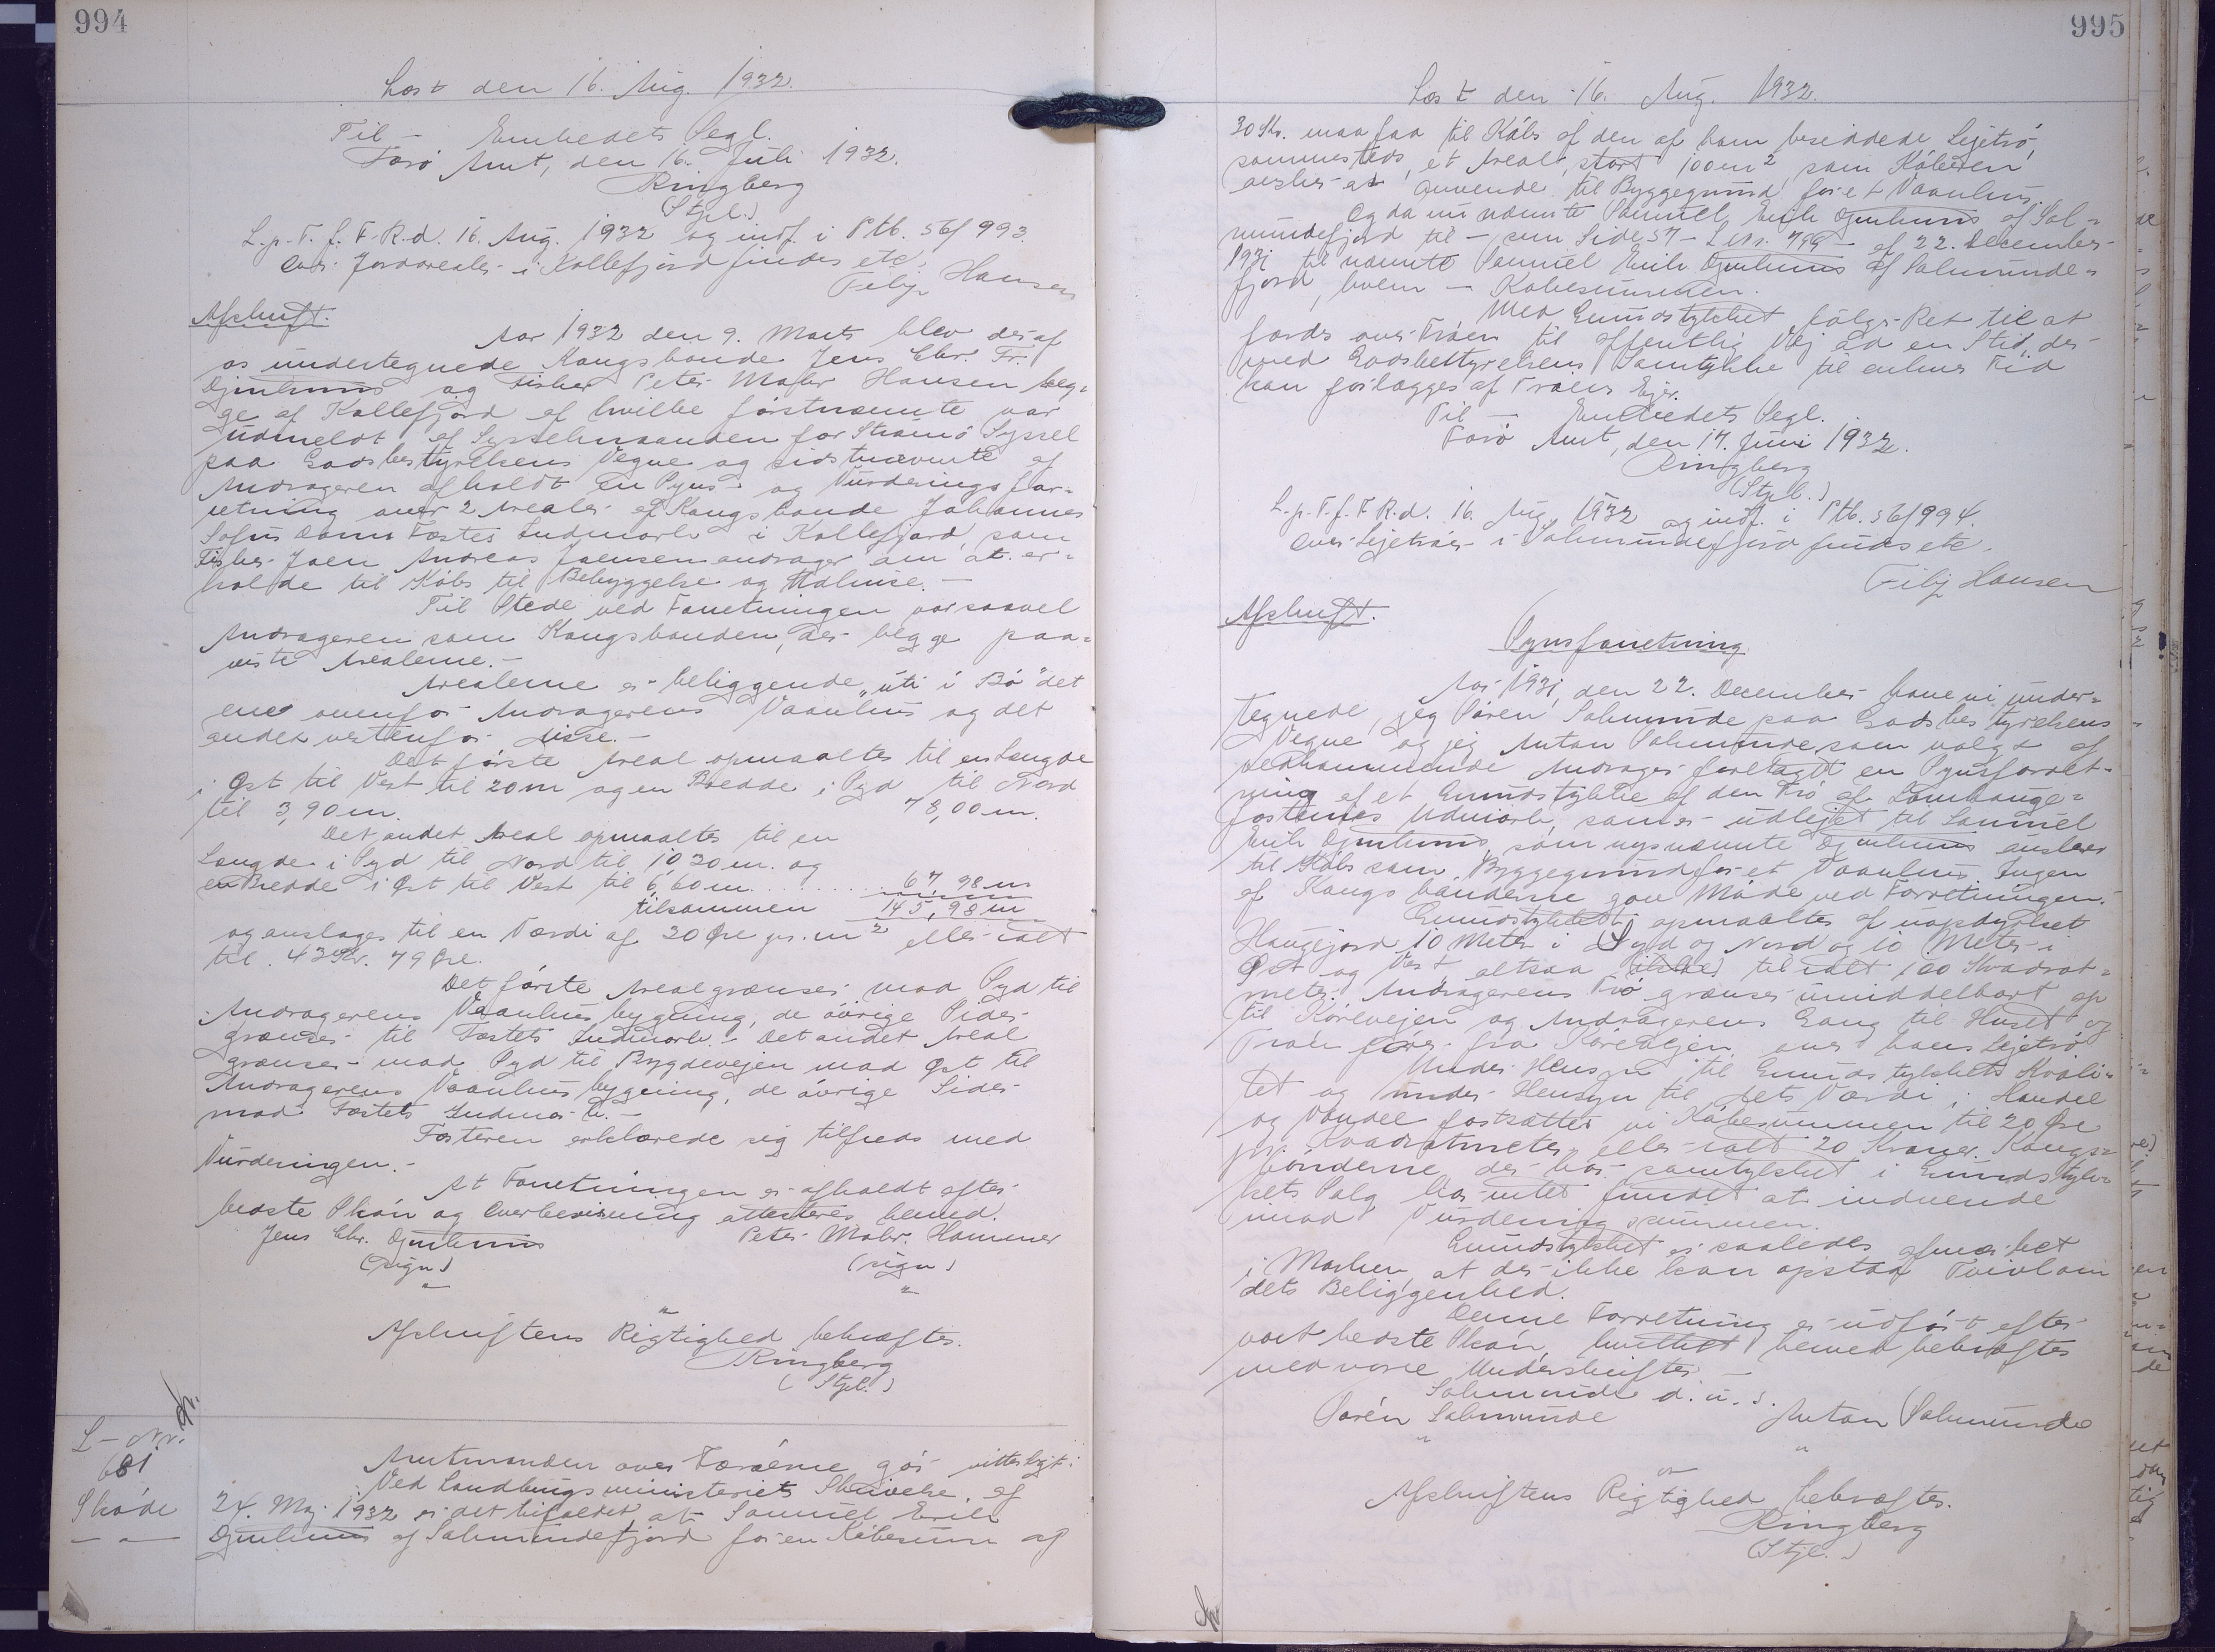 994
Læst den 16. Aug. 1932.
Til — Embedets Segl.
Færö Amt, den 16. Juli 1932.
Ringberg
(Stpl.)
L.p.T.f.F.R.d. 16. Aug. 1932 og indf. i Ptb. 56/993.
Over Jordarealer i Kollefjord findes etc.
Filip Hansen
Afskrift.
Aar 1932 den 9. Marts blev der af
os undertegnede Kongsbonde Jens Chr. Fr.
Djurhuus og Fisker Peter Mohr Hansen beg=
ge af Kollefjord af hvilke förstnævnte var
udmeldt af Sysselmanden for Strömö Syssel
paa Godsbestyrelsens Vegne og sidstnævnte af
Andrageren afholdt en Syns- og Vurderingsfor=
retning over 2 Arealer af Kongsbonde Johannes
Sofus Fæstes Indmark i Kollefjord, som
Fisker Joen Andreas Joensen andrager om at er=
holde til Köbs til Bebyggelse og Udhuse. —
Til Stede ved Forretningen var saavel
Andrageren som Kongsbonden, der begge paa=
viste Arealerne. —
Arealerne er beliggende "úti í Bö" det
ene ovenfor Andragerens Vaanhus og det
andet vestenfor disse. —
Det förste Areal opmaaltes til en Længde
i Øst til Vest til 20 m og en Bredde i Syd til Nord
til 3,90 m. 78,00 m.
Det andet Areal opmaaltes til en
Længde i Syd til Nord til 10 30 m. og
en Bredde i Øst til Vest til 6,60 m. . . . . . . . . 67,98 m
tilsammen 145,98 m
og anslages til en Værdi af 30 Øre pr. m² eller ialt
til 43 Kr. 79 Øre.
Det förste Areal grænser mod Syd til
Andragerens Vaanhusbygning, de övrige Sider
grænser til Fæstets Indmark. — Det andet Areal
grænser mod Syd til Bygdevejen mod Øst til
Andragerens Vaanhusbygning, de övrige Sider
mod Fæstets Indmark. —
Fæsteren erklærede sig tilfreds med
Vurderingen. —
At Forretningen er afholdt efter
bedste Skön og Overbevisning attesteres herved.
Jens Chr. Djurhuus Peter Mohr. Hammer
(sign) (sign)
" "
"
Afskriftens Rigtighed bekræftes.
Ringberg
(Stpl.)
L— Nr.
681
Sköde
— " —
Amtmanden over Færöerne gör vitterligt:
Ved Landbrugsministeriets Skrivelse af
24. Maj 1932 er det bifaldet, at Samuel Erik
Djurhuus af Salmundefjord for en Köbesum af
995
Læst den 16. Aug. 1932.
30 Kr. maa faa til Köbs af den af ham besiddede Lejetrö,
sammesteds, et Areal, stort 100 m², som Köberen
ønsker at anvende til Byggegrund for et Vaanhus.
Og da nu nævnte Samuel Erik Djurhuus af Sal=
mundefjord til — som Side 57 — L Nr. 799 — af 22. December
1931 til nævnte Samuel Erik Djurhuus af Salmunde=
fjord, hvem — Köbesummen.
Med Grundstykket fölger Ret til at
færdes over Tröen til offentlig Vej ad en Sti, der
med Godsbestyrelsens Samtykke til enhver Tid
kan forlægges af Tröens Ejer.
Til — Embedets Segl.
Færö Amt, den 17. Juni 1932.
Ringberg
(Stpl.)
L.p.T.f.F.R.d. 16. Aug. 1932 og indf. i Ptb. 56/994.
Over Lejetröer i Salmundefjord findes etc.
Filip Hansen
Afskrift.
Synsforretning
Aar 1931, den 22. December have vi under=
tegnede, jeg Sören Salmunde paa Godsbestyrelsens
Vegne og jeg Anton Salmunde som valgt af
vedkommende Andrager foretaget en Synsforret=
ning af et Grundstykke af den Trö af
fæsternes Udmark, som er udlejet til Samuel
Erik Djurhuus, som nysnævnte Djurhuus ønsker
til Köbs som Byggegrund for et Vaanhus. Ingen
af Kongsbønderne gav Möde ved Forretningen.
Grundstykket opmaaltes af uopdyrket
Haugejord 10 Meter i Syd og Nord og 10 Meter i
Øst og Vest altsaa til ialt 100 Kvadrat=
meter. Andragerens Trö grænser umiddelbart op
til Körevejen og Andragerens Gang til Huset og
Tröen fører fra Körevejen over hans Lejetrö.
Under Hensyn til Grundstykkets Kvali=
tet og under Hensyn til dets Værdi i Handel
og Vandel fastsætter vi Köbesummen til 20 Øre
pr. Kvadratmeter, eller ialt 20 Kroner. Kongs=
bönderne, der har samtykket i Grundstyk=
kets Salg har intet fundet at indvende
imod Vurderingssummen.
Grundstykket er saaledes afmærket
i Marken, at der ikke kan opstaa Tvivl om
dets Beliggenhed.
Denne Forretning er udfört efter
vort bedste Skön, hvilket herved bekræftes
med vore Underskrifter. —
Salmunde d. u. s.
Sören Salmunde Anton Salmunde
" "
"
Afskriftens Rigtighed bekræftes.
Ringberg
(Stpl.)